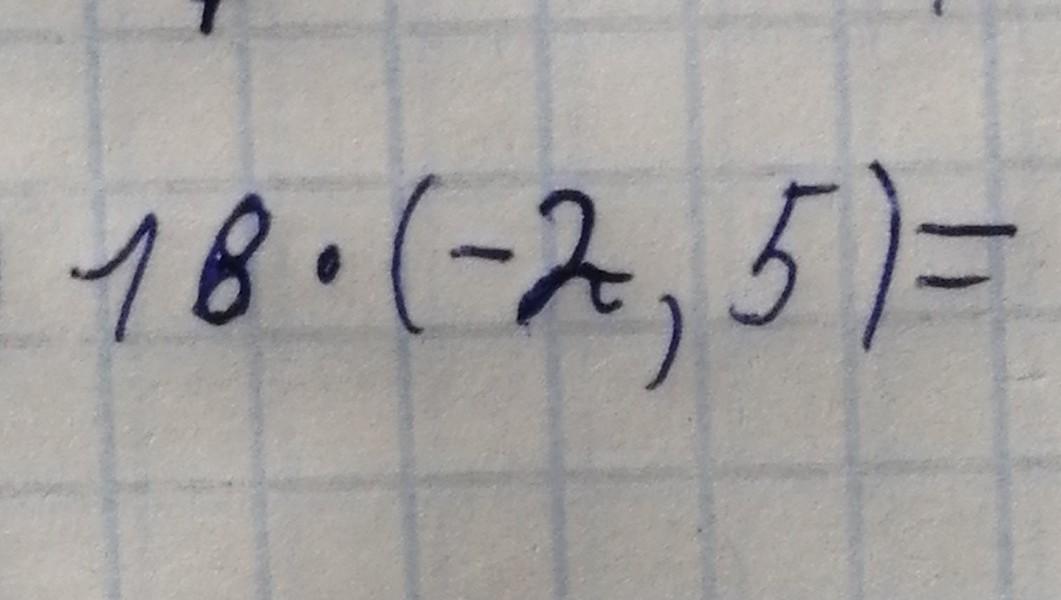 18·(-2,5)=